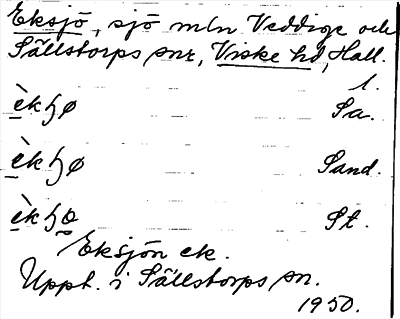 Eksjö, sjö mln Veddige och
Sällstorps snr, Viske hd, Hall.
1.
èkɧø Sa.
èkɧø Sand.
èkɧo̰ St.
Eksjön ek.
Uppt. i Sällstorps sn.
1950.